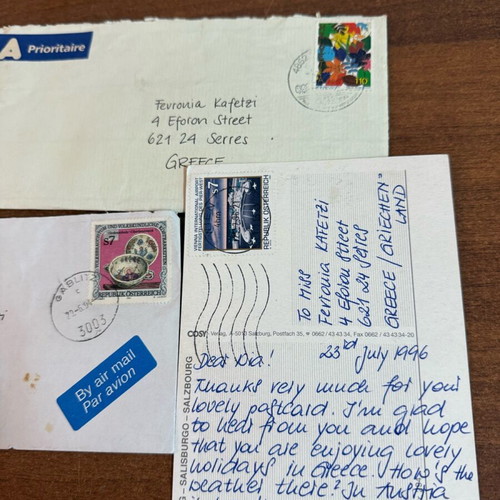 A Prioritaire
Fevronia Kafetzi
4 Eforon Street
621 24 Serres
GREECE
110
VIENNA INTERNATIONAL AIRPORT
S7
REPUBLIK ÖSTERREICH
To Miss
Fevronia KAFETZI
4 Eforon Street
621 24 Serres
GREECE/GRIECHEN=
LAND
COSY, A-5013 Salzburg, Postfach 35, ☎ 0662/43 43 34, Fax 0662/43 43 34-20
Dear Dia! 23rd July 1996
Thanks very much for your
lovely postcard. I'm glad
to hear from you and hope
that you are enjoying lovely
holidays in Greece. How's the
weather there? In Austria
G – SALISBURGO – SALZBOURG
S7
REPUBLIK ÖSTERREICH
GABLITZ
3003
By air mail
Par avion